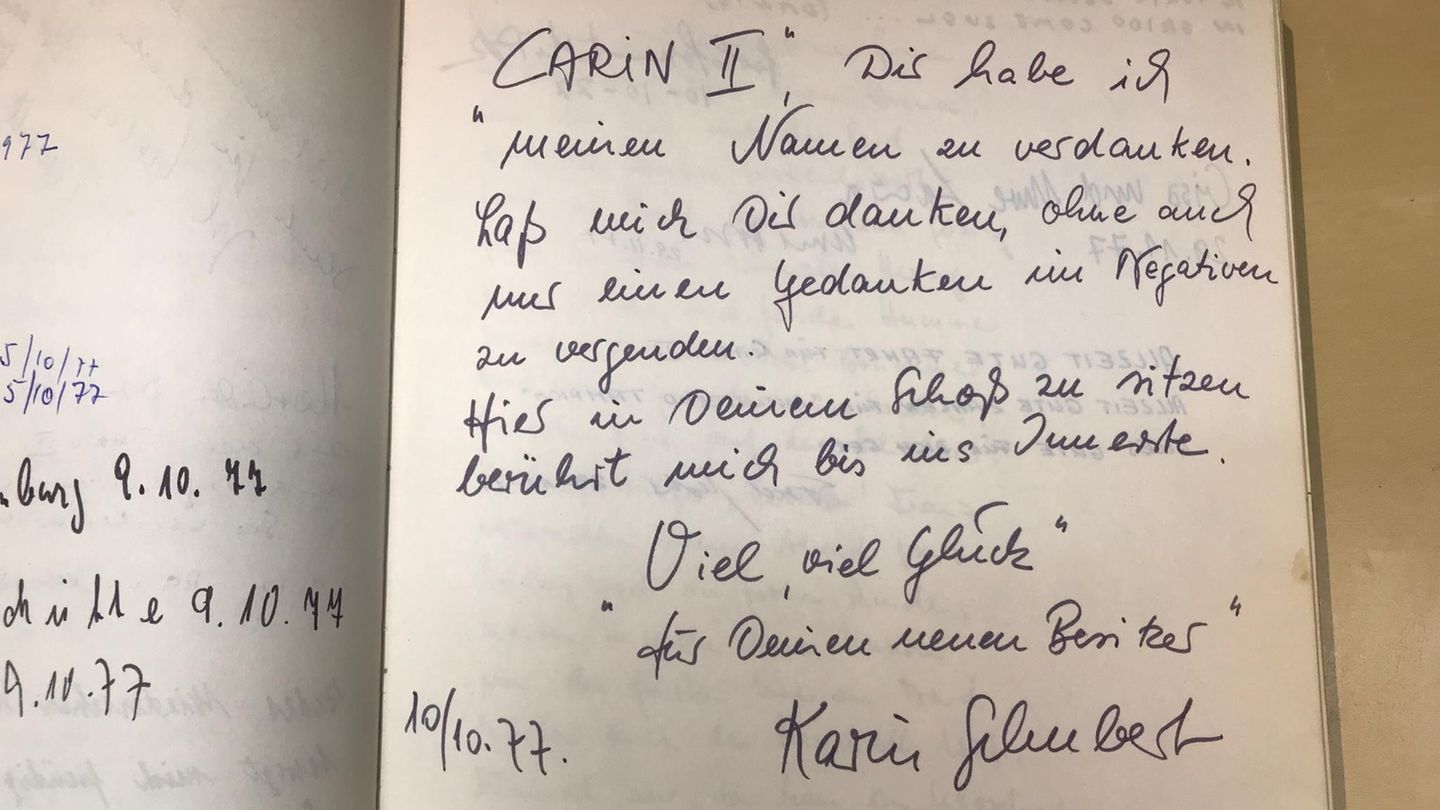 977
5/10/77
5/10/77
burg 9.10.77
9.10.77
9.10.77
"CARIN II", Dir habe ich
"meinen Namen zu verdanken.
Laß mich Dir danken, ohne auch
nur einen Gedanken im Negativen
zu vergeuden.
Hier in Deinem Schoß zu sitzen
berührt mich bis ins Innerste.
Viel, viel Glück"
"für Deinen neuen Besitzer"
10/10.77.
Karin Schubert